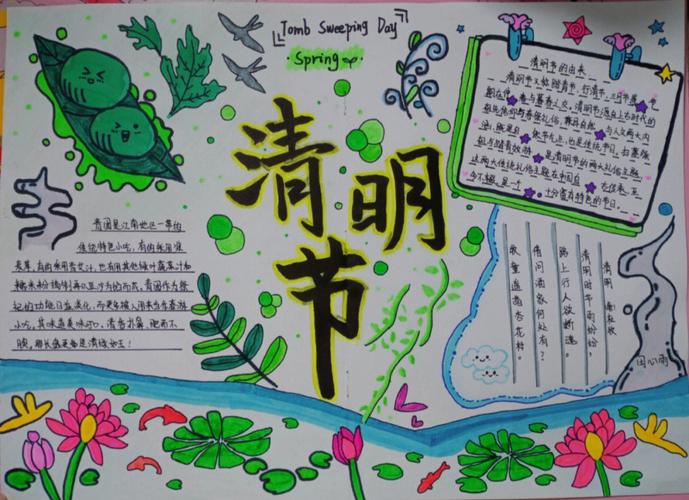 Tomb Sweeping Day
Spring
清明节
清明节的由来
清明节又叫踏青节、行清节、三月节、
期在仲春与暮春之交。清明节源自上古时代的
祖先信仰与春祭礼俗，兼具自然与人文两大内
涵，既是自然节气点，也是传统节日。扫墓祭
祖与踏青郊游是清明节的两大礼俗主题，
这两大传统礼俗主题在中国自古传承，至
今不辍，是一个十分富有特色的节日。
青团是江南地区一带的
传统特色小吃，有的采用浆
麦草，有的采用青艾汁，也有用其他绿叶蔬菜汁和
糯米粉捣制再以豆沙为馅而成，青团作为祭
祀的功能日益淡化，而更多被人用来当春游
小吃，其味道美味可口，清香扑鼻，肥而不
腴，是清绿如玉！
清明 唐 杜牧
清明时节雨纷纷，
路上行人欲断魂。
借问酒家何处有？
牧童遥指杏花村。
田心雨